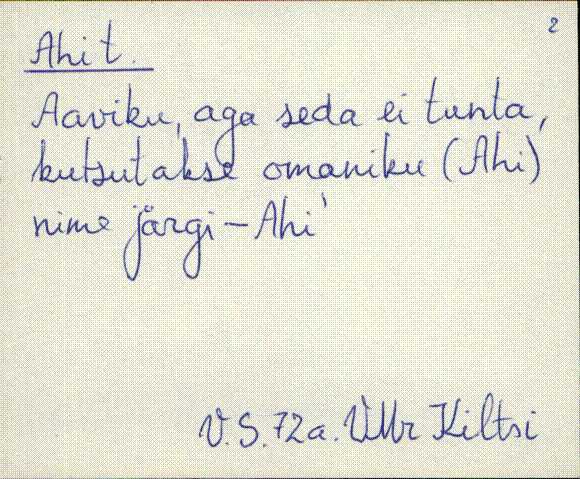 2
Ahi t.
Aaviku, aga seda ei tunta,
kutsutakse omaniku (Ahi)
nime järgi – Ahi'
V.S. 72a. VMr Kiltsi